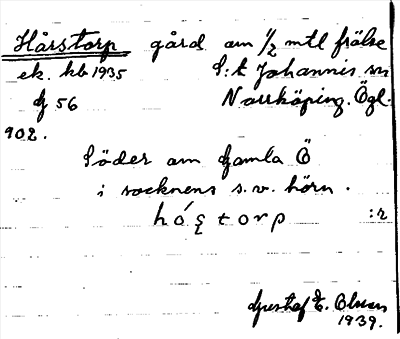 Hårstorp gård om 1/2 mtl frälse
ek. kb 1935 S:t Johannis sn
dj 56 Norrköping. Ögl.
902.
Söder om Gamla Ö
i socknens s.v. hörn.
hó̜storp :r
Gustaf E. Olsson
1939.